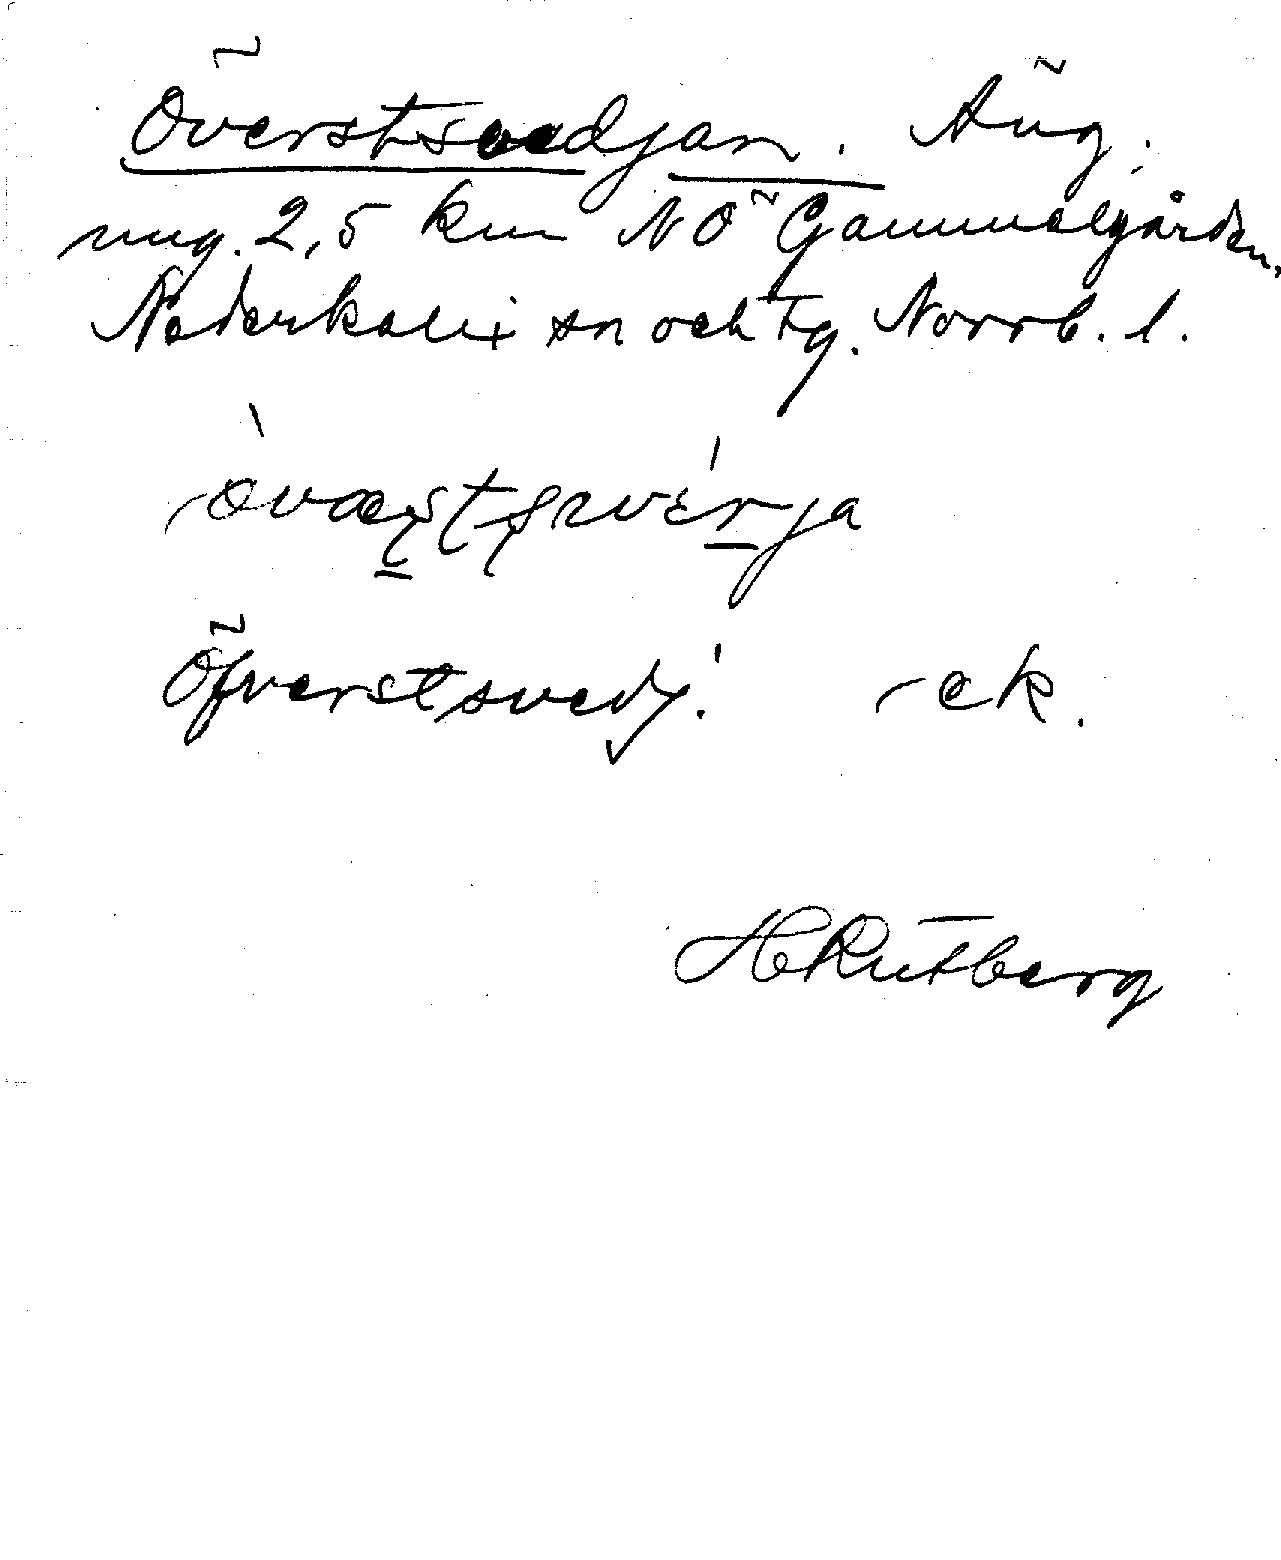 Överstsvedjan. Äng,
ung. 2,5 km NÖ Gammelgården,
Nederkalix sn och tg. Norrb. l.
Öfverstsvedj. ek.
HRutberg